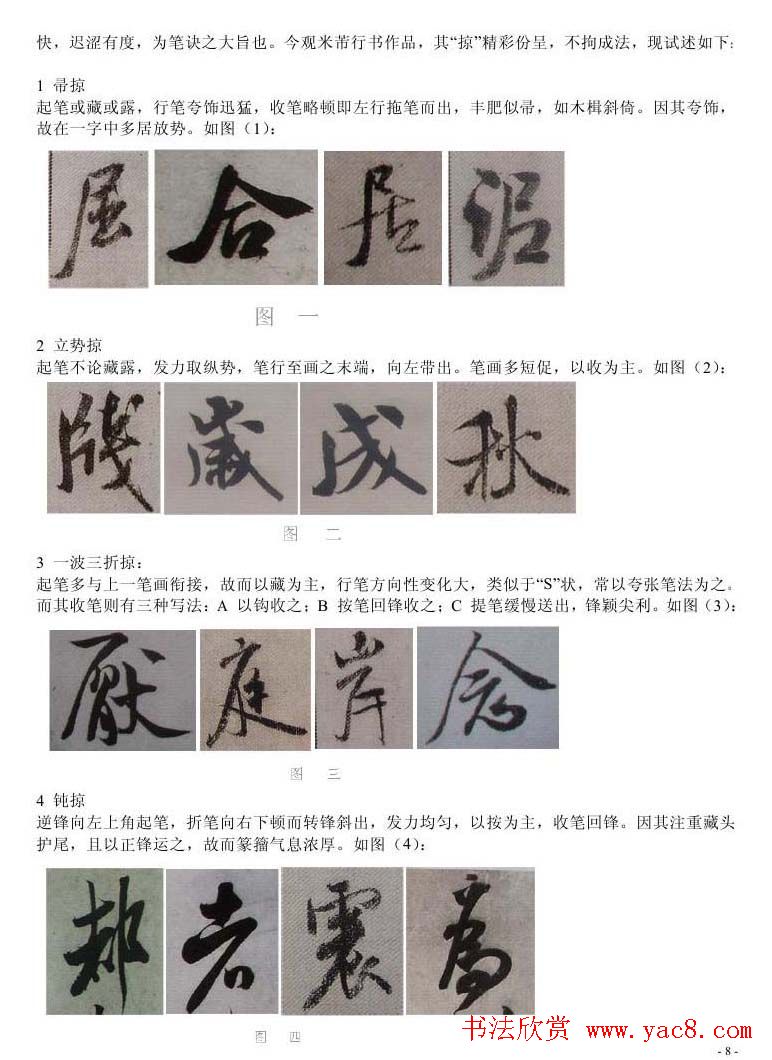 快，迟涩有度，为笔诀之大旨也。今观米芾行书作品，其“掠”精彩份呈，不拘成法，现试述如下：
1 帚掠
起笔或藏或露，行笔夸饰迅猛，收笔略顿即左行拖笔而出，丰肥似帚，如木楫斜倚。因其夸饰，
故在一字中多居放势。如图（1）：
合 居
图 一
2 立势掠
起笔不论藏露，发力取纵势，笔行至画之末端，向左带出。笔画多短促，以收为主。如图（2）：
牋 歲 成 秋
图 二
3 一波三折掠：
起笔多与上一笔画衔接，故而以藏为主，行笔方向性变化大，类似于“S”状，常以夸张笔法为之。
而其收笔则有三种写法：A 以钩收之；B 按笔回锋收之；C 提笔缓慢送出，锋颖尖利。如图（3）：
厭 庭 岸 念
图 三
4 钝掠
逆锋向左上角起笔，折笔向右下顿而转锋斜出，发力均匀，以按为主，收笔回锋。因其注重藏头
护尾，且以正锋运之，故而篆籀气息浓厚。如图（4）：
震 為
图 四
书法欣赏 www.yac8.com
- 8 -